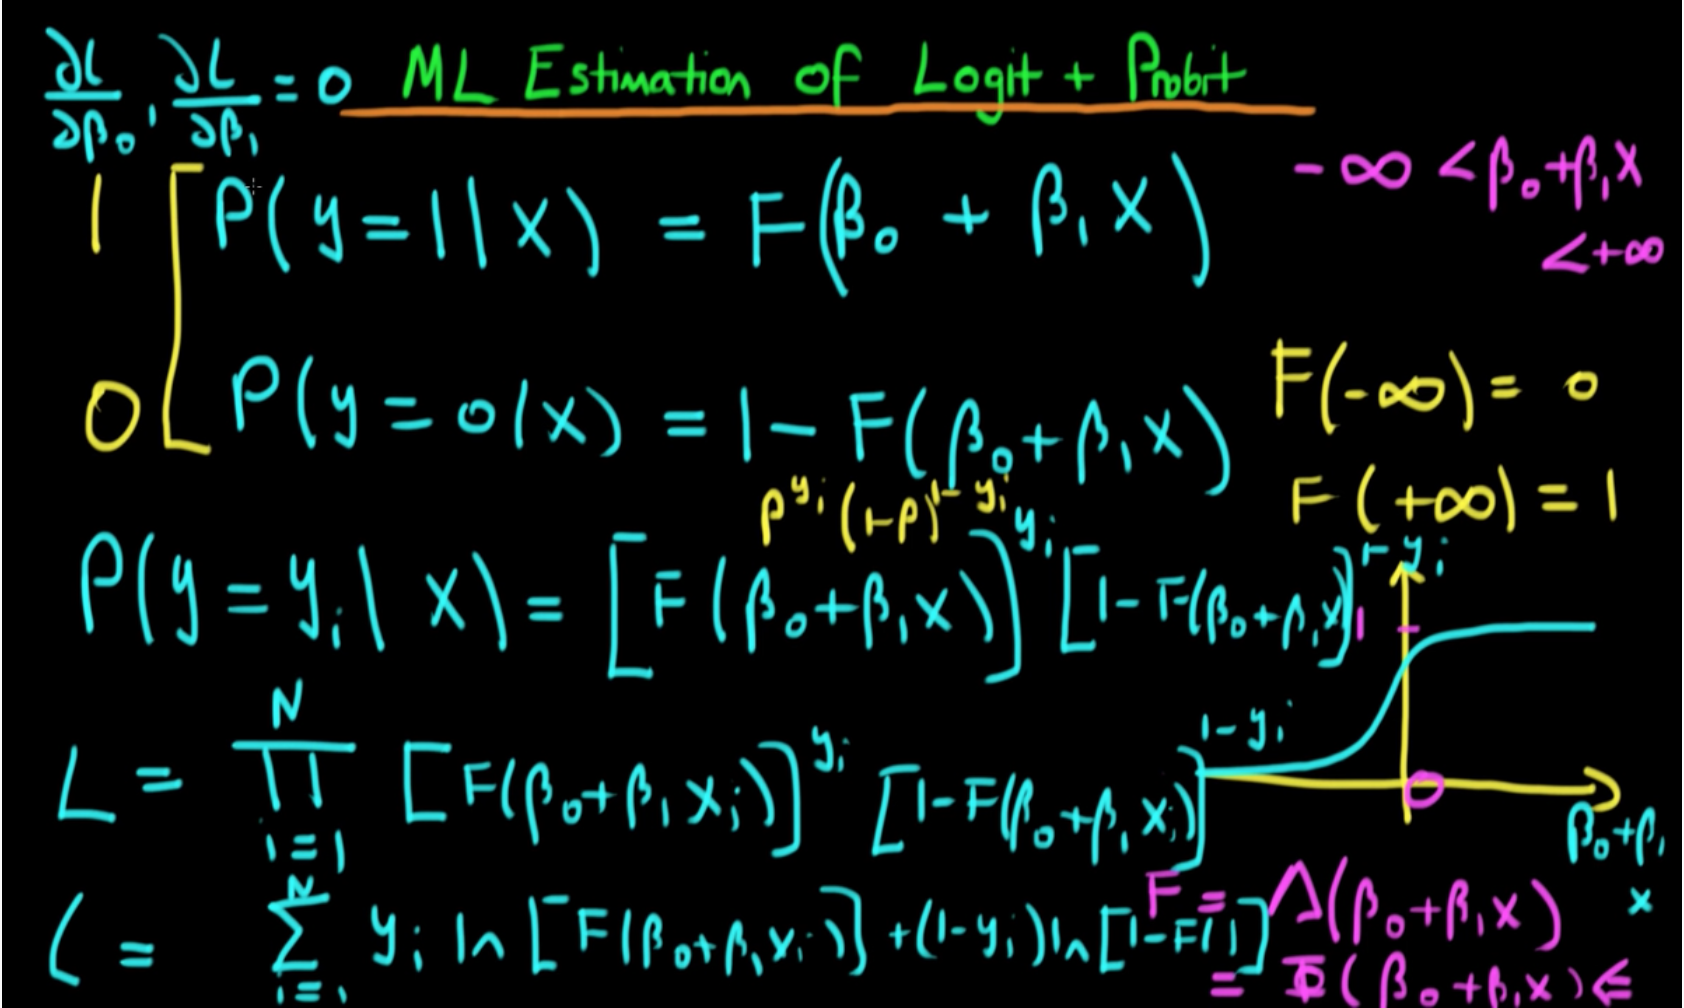 ∂L/∂β₀, ∂L/∂β₁ = 0
ML Estimation of Logit + Probit
-∞ < β₀+β₁X
< +∞
1 [ P(y=1|X) = F(β₀ + β₁X)
0 [ P(y=0|X) = 1 - F(β₀+β₁X)
F(-∞) = 0
F(+∞) = 1
P^yᵢ (1-P)^1-yᵢ
P(y=yᵢ|X) = [F(β₀+β₁X)]^yᵢ [1-F(β₀+β₁X)]^1-yᵢ
1
L = ∏ᴺᵢ₌₁ [F(β₀+β₁Xᵢ)]^yᵢ [1-F(β₀+β₁Xᵢ)]^1-yᵢ
0
β₀+β₁
x
l = ∑ᴺᵢ₌₁ yᵢ ln[F(β₀+β₁Xᵢ)] + (1-yᵢ)ln[1-F( )]
F = Λ(β₀+β₁X)
= Φ(β₀+β₁X) ⇐